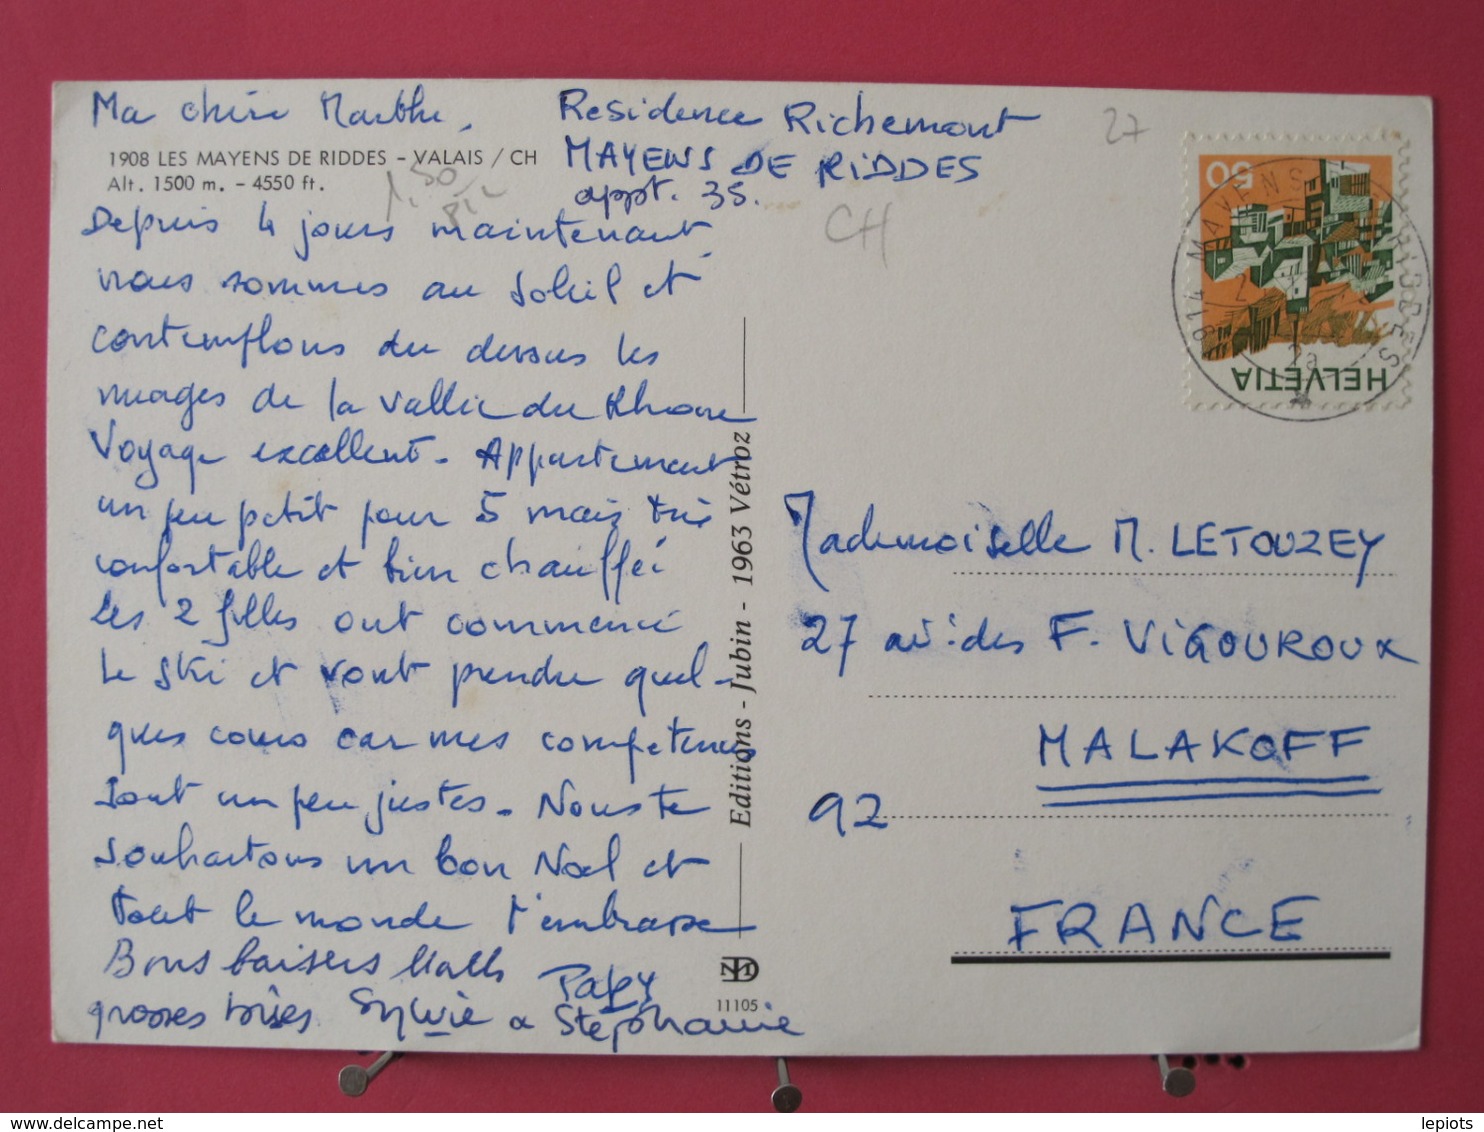 Ma chère Marthe,
1908 LES MAYENS DE RIDDES - VALAIS / CH
Alt. 1500 m. - 4550 ft.
Residence Richemont
MAYENS DE RIDDES
appt. 35.
27
1.50
CH
Depuis 4 jours maintenant
nous sommes au soleil et
contemplons du dessus les
nuages de la vallée du Rhone
Voyage excellent. Appartement
un peu petit pour 5 mais très
confortable et bien chauffé
Les 2 filles ont commencé
le ski et vont prendre quel-
ques cours car mes competences
sont un peu justes. Nous te
souhaitons un bon Noel et
tout le monde t'embrasse
Bons baisers
Papy
grosses bises Sylvie & Stephanie
Editions - Jubin - 1963 Vétroz
11105
50
HELVETIA
1914 MAYENS DE RIDDES
Mademoiselle M. LETOUZEY
27 av: des F. VIGOUROUX
MALAKOFF
92
FRANCE
lepiots